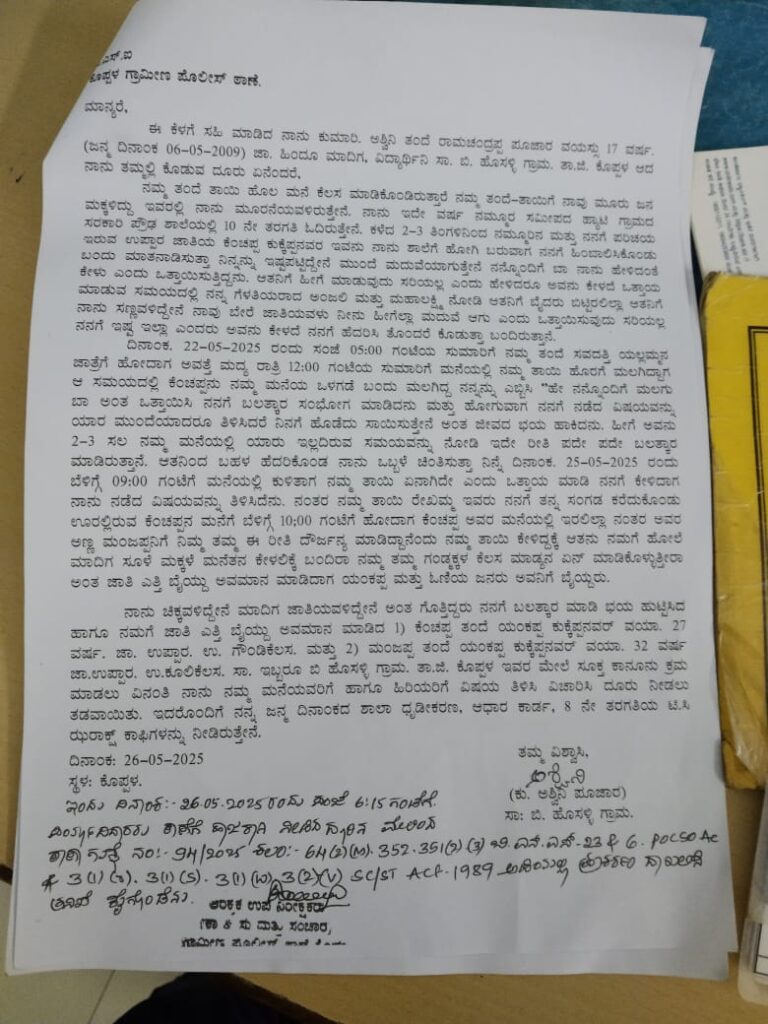 ಎಸ್.ಐ
ಕೊಪ್ಪಳ ಗ್ರಾಮೀಣ ಪೊಲೀಸ್ ಠಾಣೆ.
ಮಾನ್ಯರೆ,
ಈ ಕೆಳಗೆ ಸಹಿ ಮಾಡಿದ ನಾನು ಕುಮಾರಿ. ಅಶ್ವಿನಿ ತಂದೆ ರಾಮಚಂದ್ರಪ್ಪ ಪೂಜಾರ ವಯಸ್ಸು 17 ವರ್ಷ.
(ಜನ್ಮ ದಿನಾಂಕ 06-05-2009) ಜಾ. ಹಿಂದೂ ಮಾದಿಗ, ವಿದ್ಯಾರ್ಥಿನಿ ಸಾ. ಬಿ. ಹೊಸಳ್ಳಿ ಗ್ರಾಮ. ತಾ.ಜಿ. ಕೊಪ್ಪಳ ಆದ
ನಾನು ತಮ್ಮಲ್ಲಿ ಕೊಡುವ ದೂರು ಏನೆಂದರೆ,
ನಮ್ಮ ತಂದೆ ತಾಯಿ ಹೊಲ ಮನೆ ಕೆಲಸ ಮಾಡಿಕೊಂಡಿರುತ್ತಾರೆ ನಮ್ಮ ತಂದೆ-ತಾಯಿಗೆ ನಾವು ಮೂರು ಜನ
ಮಕ್ಕಳಿದ್ದು ಇವರಲ್ಲಿ ನಾನು ಮೂರನೆಯವಳಿರುತ್ತೇನೆ. ನಾನು ಇದೇ ವರ್ಷ ನಮ್ಮೂರ ಸಮೀಪದ ಹ್ಯಾಟಿ ಗ್ರಾಮದ
ಸರಕಾರಿ ಪ್ರೌಢ ಶಾಲೆಯಲ್ಲಿ 10 ನೇ ತರಗತಿ ಓದಿರುತ್ತೇನೆ. ಕಳೆದ 2-3 ತಿಂಗಳಿನಿಂದ ನಮ್ಮೂರಿನ ಮತ್ತು ನನಗೆ ಪರಿಚಯ
ಇರುವ ಉಪ್ಪಾರ ಜಾತಿಯ ಕೆಂಚಪ್ಪ ಕುಕ್ಕೆಪ್ಪನವರ ಇವನು ನಾನು ಶಾಲೆಗೆ ಹೋಗಿ ಬರುವಾಗ ನನಗೆ ಹಿಂಬಾಲಿಸಿಕೊಂಡು
ಬಂದು ಮಾತನಾಡಿಸುತ್ತಾ ನಿನ್ನನ್ನು ಇಷ್ಟಪಟ್ಟಿದ್ದೇನೆ ಮುಂದೆ ಮದುವೆಯಾಗುತ್ತೇನೆ ನನ್ನೊಂದಿಗೆ ಬಾ ನಾನು ಹೇಳಿದಂತೆ
ಕೇಳು ಎಂದು ಒತ್ತಾಯಿಸುತ್ತಿದ್ದನು. ಆತನಿಗೆ ಹೀಗೆ ಮಾಡುವುದು ಸರಿಯಲ್ಲ ಎಂದು ಹೇಳಿದರೂ ಅವನು ಕೇಳದೆ ಒತ್ತಾಯ
ಮಾಡುವ ಸಮಯದಲ್ಲಿ ನನ್ನ ಗೆಳತಿಯರಾದ ಅಂಜಲಿ ಮತ್ತು ಮಹಾಲಕ್ಷ್ಮಿ ನೋಡಿ ಆತನಿಗೆ ಬೈದರು ಬಿಟ್ಟಿರಲಿಲ್ಲಾ ಆತನಿಗೆ
ನಾನು ಸಣ್ಣವಳಿದ್ದೇನೆ ನಾವು ಬೇರೆ ಜಾತಿಯವಳು ನೀನು ಹೀಗೆಲ್ಲಾ ಮದುವೆ ಆಗು ಎಂದು ಒತ್ತಾಯಿಸುವುದು ಸರಿಯಲ್ಲ
ನನಗೆ ಇಷ್ಟ ಇಲ್ಲಾ ಎಂದರು ಅವನು ಕೇಳದೆ ನನಗೆ ಹೆದರಿಸಿ ತೊಂದರೆ ಕೊಡುತ್ತಾ ಬಂದಿರುತ್ತಾನೆ.
ದಿನಾಂಕ. 22-05-2025 ರಂದು ಸಂಜೆ 05:00 ಗಂಟೆಯ ಸುಮಾರಿಗೆ ನಮ್ಮ ತಂದೆ ಸವದತ್ತಿ ಯಲ್ಲಮ್ಮನ
ಜಾತ್ರೆಗೆ ಹೋದಾಗ ಅವತ್ತೆ ಮದ್ಯ ರಾತ್ರಿ 12:00 ಗಂಟೆಯ ಸುಮಾರಿಗೆ ಮನೆಯಲ್ಲಿ ನಮ್ಮ ತಾಯಿ ಹೊರಗೆ ಮಲಗಿದ್ದಾಗ
ಆ ಸಮಯದಲ್ಲಿ ಕೆಂಚಪ್ಪನು ನಮ್ಮ ಮನೆಯ ಒಳಗಡೆ ಬಂದು ಮಲಗಿದ್ದ ನನ್ನನ್ನು ಎಬ್ಬಿಸಿ "ಹೇ ನನ್ನೊಂದಿಗೆ ಮಲಗು
ಬಾ ಅಂತ ಒತ್ತಾಯಿಸಿ ನನಗೆ ಬಲತ್ಕಾರ ಸಂಭೋಗ ಮಾಡಿದನು ಮತ್ತು ಹೋಗುವಾಗ ನನಗೆ ನಡೆದ ವಿಷಯವನ್ನು
ಯಾರ ಮುಂದೆಯಾದರೂ ತಿಳಿಸಿದರೆ ನಿನಗೆ ಹೊಡೆದು ಸಾಯಿಸುತ್ತೇನೆ ಅಂತ ಜೀವದ ಭಯ ಹಾಕಿದನು. ಹೀಗೆ ಅವನು
2-3 ಸಲ ನಮ್ಮ ಮನೆಯಲ್ಲಿ ಯಾರು ಇಲ್ಲದಿರುವ ಸಮಯವನ್ನು ನೋಡಿ ಇದೇ ರೀತಿ ಪದೇ ಪದೇ ಬಲತ್ಕಾರ
ಮಾಡಿರುತ್ತಾನೆ. ಆತನಿಂದ ಬಹಳ ಹೆದರಿಕೊಂಡ ನಾನು ಒಬ್ಬಳೆ ಚಿಂತಿಸುತ್ತಾ ನಿನ್ನೆ ದಿನಾಂಕ. 25-05-2025 ರಂದು
ಬೆಳಿಗ್ಗೆ 09:00 ಗಂಟೆಗೆ ಮನೆಯಲ್ಲಿ ಕುಳಿತಾಗ ನಮ್ಮ ತಾಯಿ ಏನಾಗಿದೇ ಎಂದು ಒತ್ತಾಯ ಮಾಡಿ ನನಗೆ ಕೇಳಿದಾಗ
ನಾನು ನಡೆದ ವಿಷಯವನ್ನು ತಿಳಿಸಿದೆನು. ನಂತರ ನಮ್ಮ ತಾಯಿ ರೇಖಿಮ್ಮ ಇವರು ನನಗೆ ತನ್ನ ಸಂಗಡ ಕರೆದುಕೊಂಡು
ಊರಲ್ಲಿರುವ ಕೆಂಚಪ್ಪನ ಮನೆಗೆ ಬೆಳಿಗ್ಗೆ 10;00 ಗಂಟೆಗೆ ಹೋದಾಗ ಕೆಂಚಪ್ಪ ಅವರ ಮನೆಯಲ್ಲಿ ಇರಲಿಲ್ಲಾ ನಂತರ ಅವರ
ಅಣ್ಣ ಮಂಜಪ್ಪನಿಗೆ ನಿಮ್ಮ ತಮ್ಮ ಈ ರೀತಿ ದೌರ್ಜನ್ಯ ಮಾಡಿದ್ದಾನೆಂದು ನಮ್ಮ ತಾಯಿ ಕೇಳಿದ್ದಕ್ಕೆ ಆತನು ನಮಗೆ ಹೋಲೆ
ಮಾದಿಗ ಸೂಳೆ ಮಕ್ಕಳೆ ಮನೆತನ ಕೇಳಲಿಕ್ಕೆ ಬಂದಿರಾ ನಮ್ಮ ತಮ್ಮ ಗಂಡ್ಮಕ್ಕಳ ಕೆಲಸ ಮಾಡ್ಯಾನ ಏನ್ ಮಾಡಿಕೊಳ್ಳುತ್ತೀರಾ
ಅಂತ ಜಾತಿ ಎತ್ತಿ ಬೈಯ್ದು ಅವಮಾನ ಮಾಡಿದಾಗ ಯಂಕಪ್ಪ ಮತ್ತು ಓಣಿಯ ಜನರು ಅವನಿಗೆ ಬೈಯ್ದರು.
ನಾನು ಚಿಕ್ಕವಳಿದ್ದೇನೆ ಮಾದಿಗ ಜಾತಿಯವಳಿದ್ದೇನೆ ಅಂತ ಗೊತ್ತಿದ್ದರು ನನಗೆ ಬಲತ್ಕಾರ ಮಾಡಿ ಭಯ ಹುಟ್ಟಿಸಿದ
ಹಾಗೂ ನಮಗೆ ಜಾತಿ ಎತ್ತಿ ಬೈಯ್ದು ಅವಮಾನ ಮಾಡಿದ 1) ಕೆಂಚಪ್ಪ ತಂದೆ ಯಂಕಪ್ಪ ಕುಕ್ಕೆಪ್ಪನವರ್ ವಯಾ. 27
ವರ್ಷ. ಜಾ. ಉಪ್ಪಾರ. ಉ. ಗೌಂಡಿಕೆಲಸ. ಮತ್ತು 2) ಮಂಜಪ್ಪ ತಂದೆ ಯಂಕಪ್ಪ ಕುಕ್ಕೆಪ್ಪನವರ್ ವಯಾ. 32 ವರ್ಷ
ಜಾ.ಉಪ್ಪಾರ. ಉ.ಕೂಲಿಕೆಲಸ. ಸಾ. ಇಬ್ಬರೂ ಬಿ ಹೊಸಳ್ಳಿ ಗ್ರಾಮ. ತಾ.ಜಿ. ಕೊಪ್ಪಳ ಇವರ ಮೇಲೆ ಸೂಕ್ತ ಕಾನೂನು ಕ್ರಮ
ಮಾಡಲು ವಿನಂತಿ ನಾನು ನಮ್ಮ ಮನೆಯವರಿಗೆ ಹಾಗೂ ಹಿರಿಯರಿಗೆ ವಿಷಯ ತಿಳಿಸಿ ವಿಚಾರಿಸಿ ದೂರು ನೀಡಲು
ತಡವಾಯಿತು. ಇದರೊಂದಿಗೆ ನನ್ನ ಜನ್ಮ ದಿನಾಂಕದ ಶಾಲಾ ಧೃಡೀಕರಣ, ಆಧಾರ ಕಾರ್ಡ, 8 ನೇ ತರಗತಿಯ ಟಿ.ಸಿ
ಝರಾಕ್ಷ್ ಕಾಫಿಗಳನ್ನು ನೀಡಿರುತ್ತೇನೆ.
ದಿನಾಂಕ: 26-05-2025
ಸ್ಥಳ: ಕೊಪ್ಪಳ.
ತಮ್ಮ ವಿಶ್ವಾಸಿ,
ಅಶ್ವಿನಿ
(ಕು. ಅಶ್ವಿನಿ ಪೂಜಾರ)
ಸಾ: ಬಿ. ಹೊಸಳ್ಳಿ ಗ್ರಾಮ.
ಇಂದು ದಿನಾಂಕ:- 26.05.2025 ರಂದು ಸಂಜೆ 6:15 ಗಂಟೆಗೆ
ಪಿರ್ಯಾದಿದಾರರು ಠಾಣೆಗೆ ಹಾಜರಾಗಿ ನೀಡಿದ ದೂರಿನ ಮೇಲಿಂದ
ಠಾಣಾ ಗುನ್ನೆ ನಂ:- 94/2025 ಕಲಂ:- 64(2)(M). 352. 351(2)(3) ಬಿ.ಎನ್.ಎಸ್-23 & 6. POCSO Ac
& 3(1)(r). 3(1)(S). 3(1)(W) 3(2)(V) SC/ST ACT-1989 ಅಡಿಯಲ್ಲಿ ಪ್ರಕರಣ ದಾಖಲಿಸಿ
ತನಿಖೆ ಕೈಗೊಂಡೆನು.
ಆರಕ್ಷಕ ಉಪ ನಿರೀಕ್ಷಕರು
(ಕಾ & ಸು ಮತ್ತು ಸಂಚಾರ,
ಗ್ರಾಮೀಣ ಪೊಲೀಸ್ ಠಾಣೆ